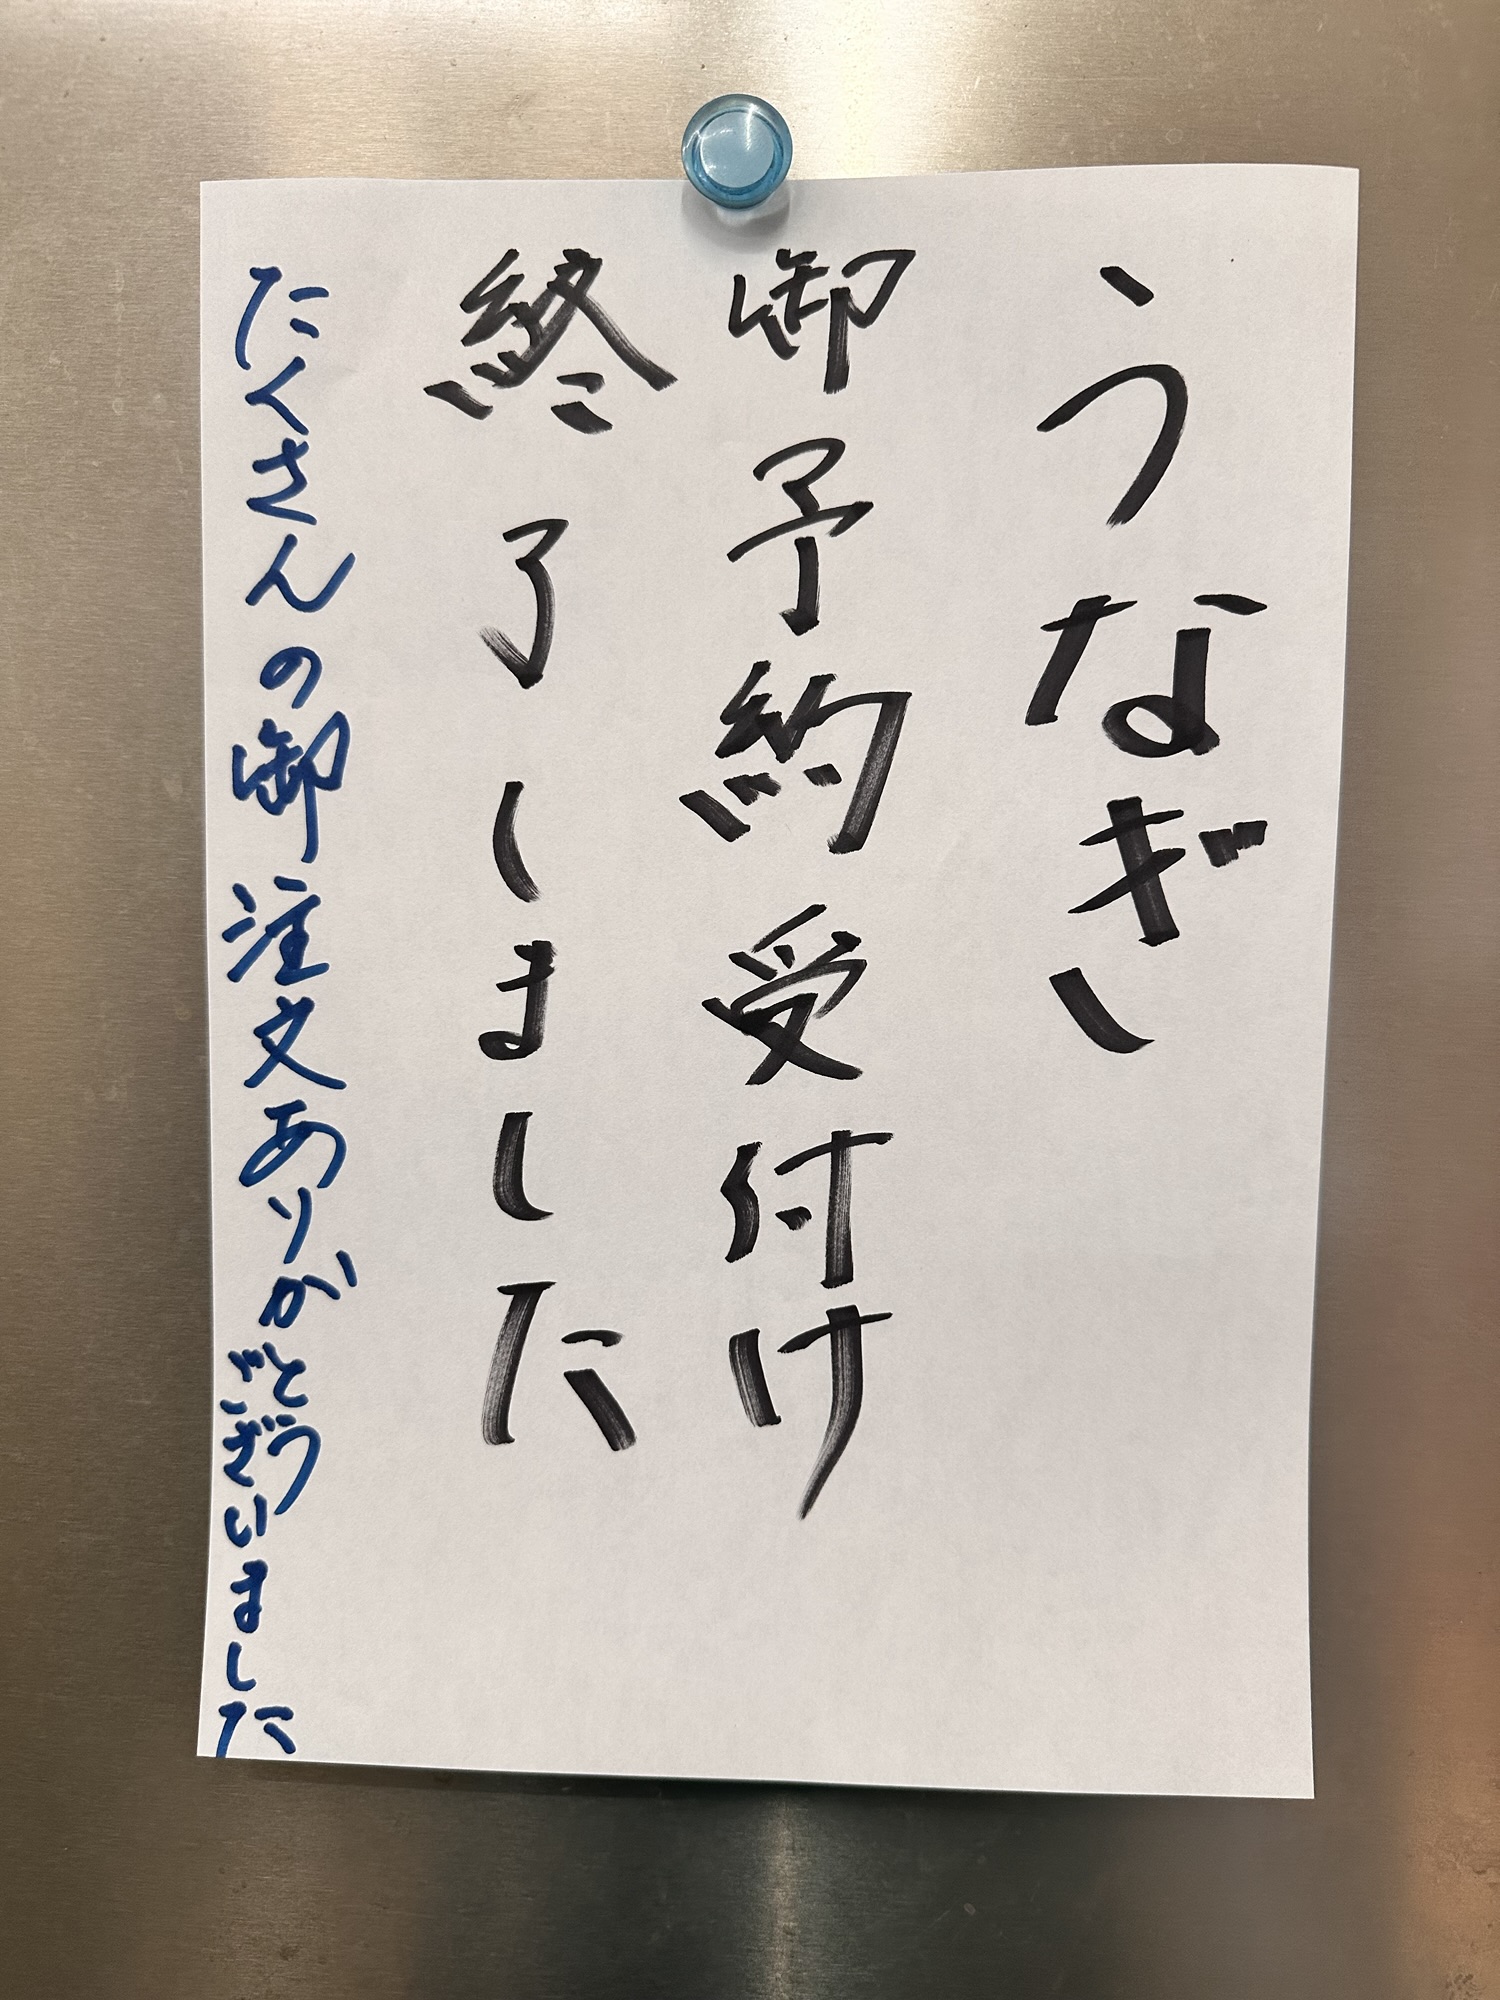 うなぎ、
御予約受付け
終了しました
たくさんの御注文ありがとう
ございました